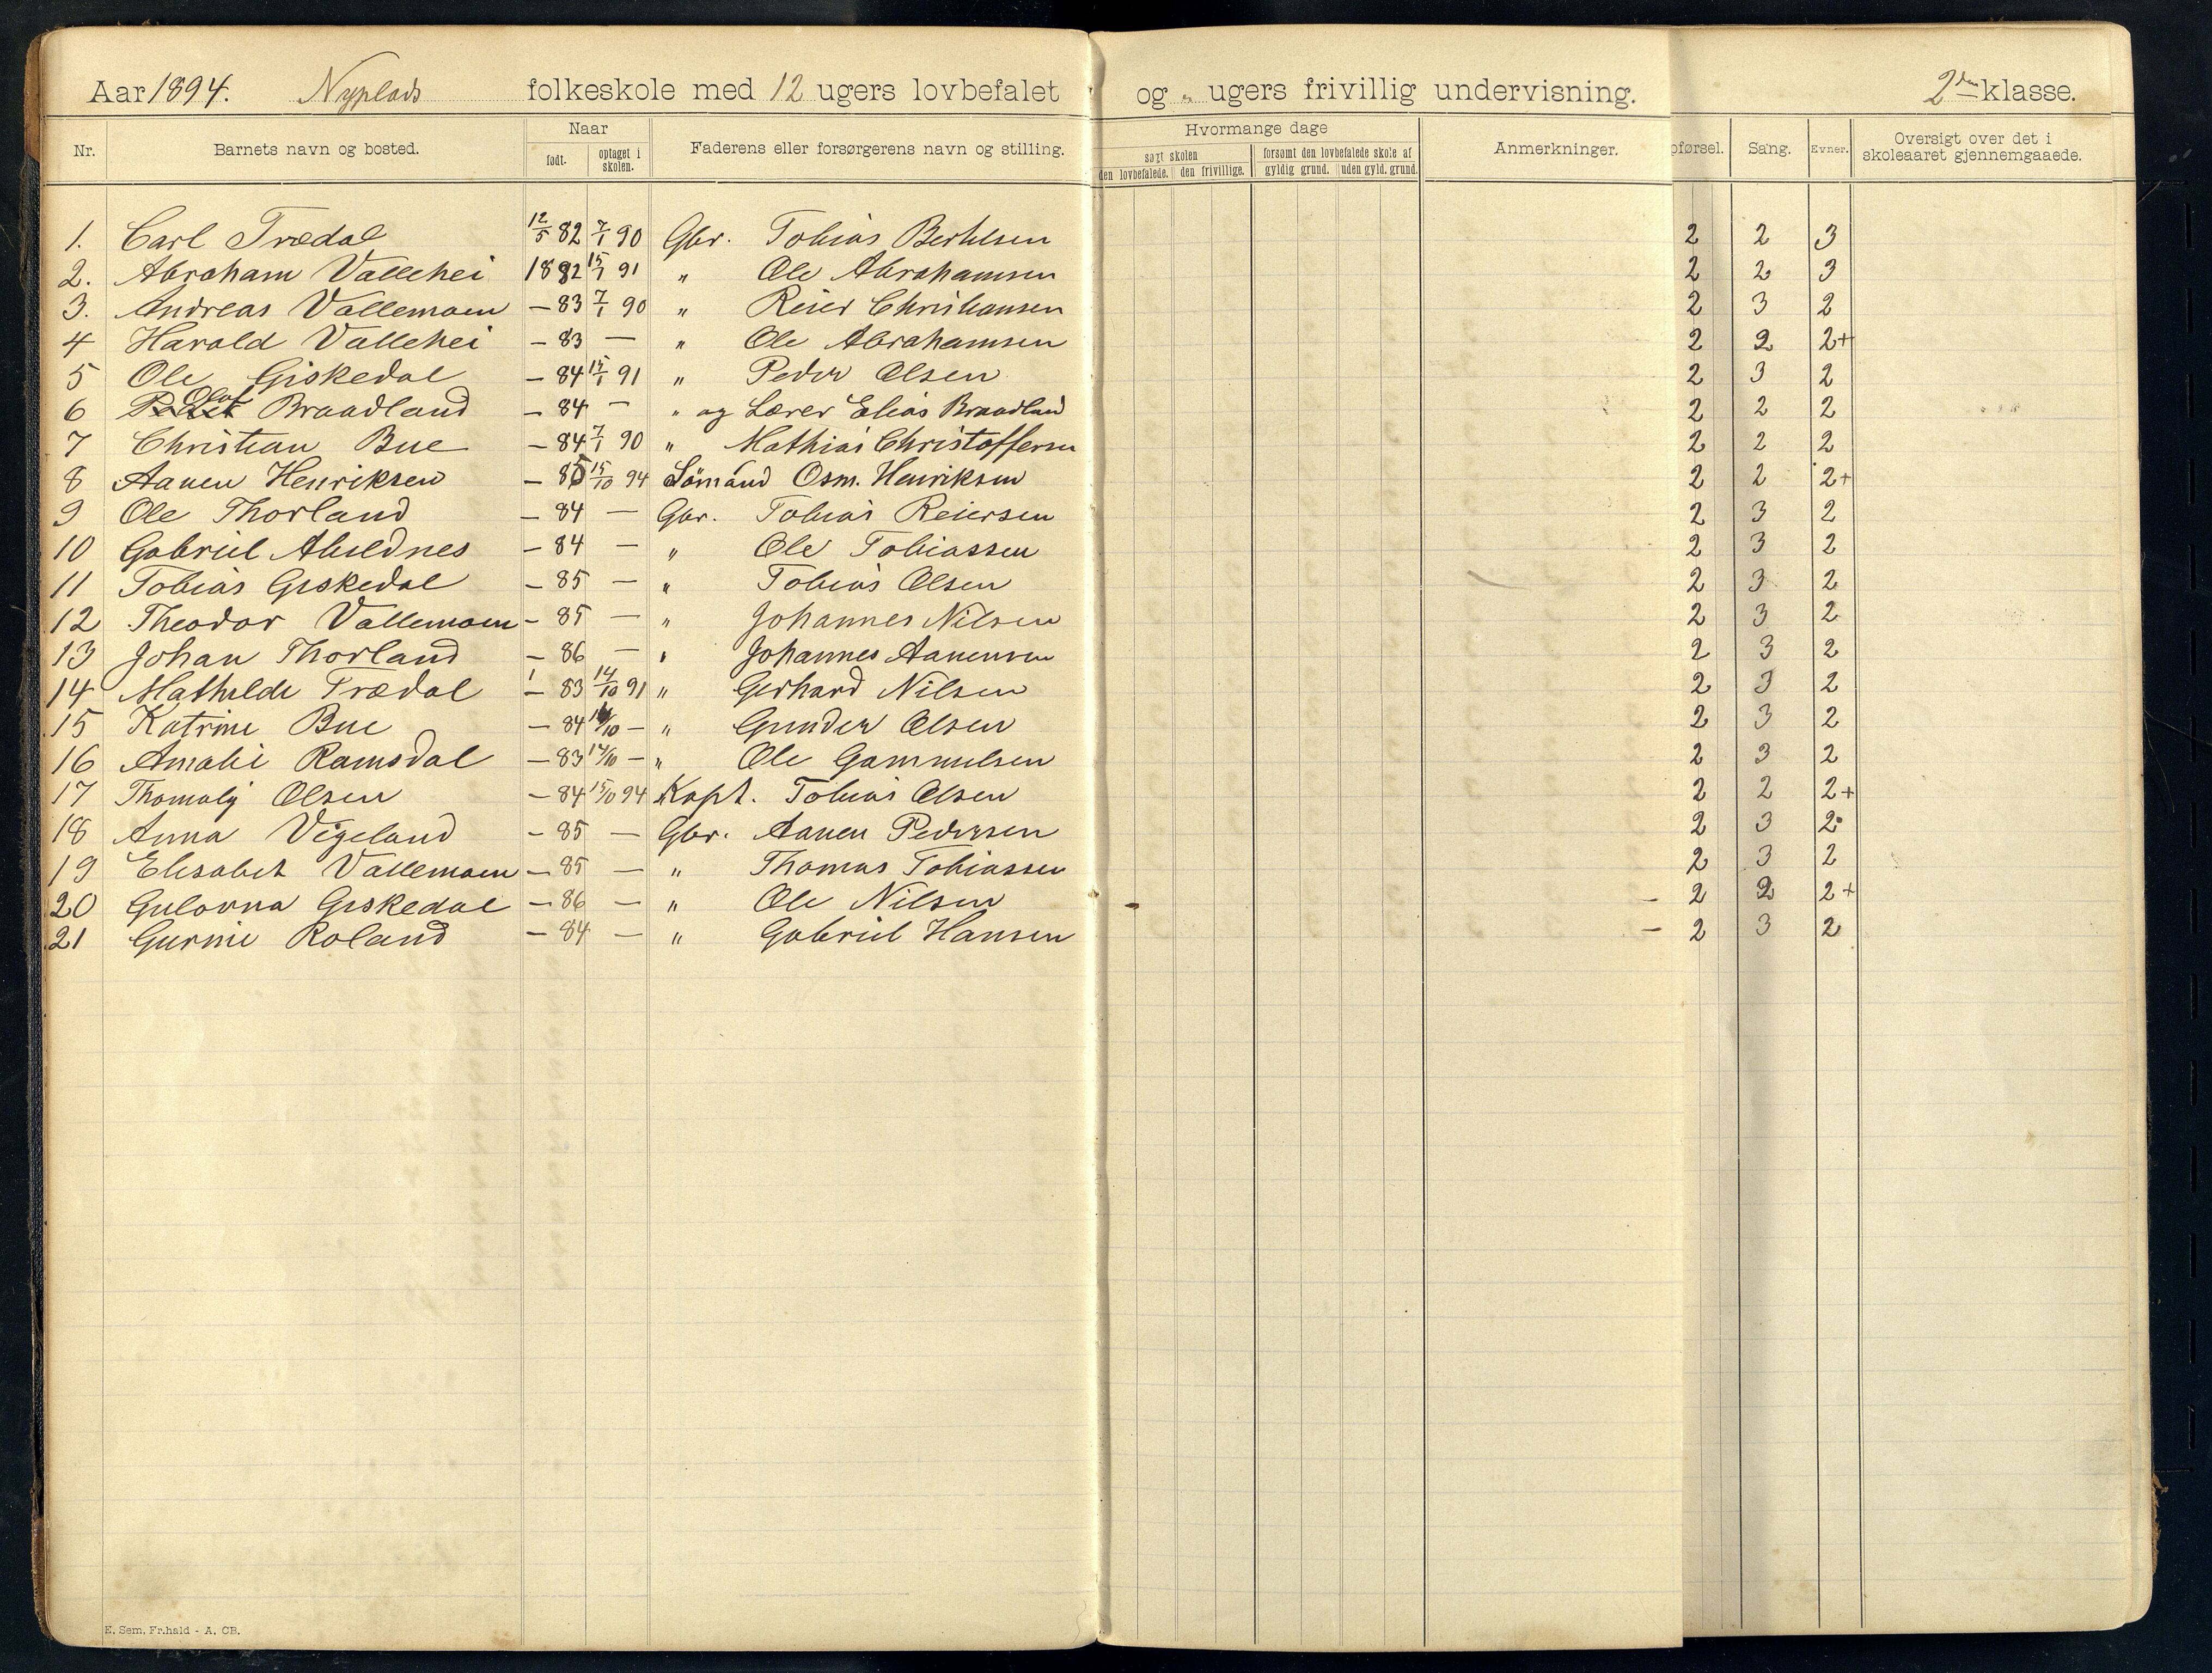 Aar 1894. Nyplads folkeskole med 12 ugers lovbefalet og „ ugers frivillig undervisning. 2den klasse.
Nr. Barnets navn og bosted. Naar Faderens eller forsørgerens navn og stilling. Hvormange dage Anmerkninger. pførsel. Sang. Evner. Oversigt over det i skoleaaret gjennemgaaede.
født. optaget i skolen. søgt skolen forsømt den lovbefalede skole af
den lovbefalede. den frivillige. gyldig grund. uden gyld. grund.
1. Carl Trædal 12/5 82 7/1 90 Gbr. Tobias Berthelsen 2 2 3
2. Abraham Vallehei 1882 15/1 91 „ Ole Abrahamsen 2 2 3
3. Andreas Vallemoen – 83 7/1 90 „ Reier Christiansen 2 3 2
4 Harald Vallehei – 83 — „ Ole Abrahamsen 2 2 2+
5 Ole Giskedal – 84 15/1 91 „ Peder Olsen 2 3 2
6 Olaf Braadland – 84 — „ og Lærer Elias Braadland 2 2 2
7 Christian Bue – 84 7/1 90 „ Mathias Christoffersen 2 2 2
8 Aanen Henriksen – 85 15/10 94 Sömand Osm. Henriksen 2 2 2+
9 Ole Thorland – 84 — Gbr. Tobias Reiersen 2 3 2
10 Gabriel – 84 — „ Ole Tobiassen 2 3 2
11 Tobias Giskedal – 85 — „ Tobias Olsen 2 3 2
12 Theodor Vallemoen – 85 — „ Johannes Nilsen 2 3 2
13 Johan Thorland – 86 — „ Johannes Aanensen 2 3 2
14 Mathilde Trædal – 83 14/10 91 „ Gerhard Nilsen 2 3 2
15 Katrine Bue – 84 14/10 – „ Gunder Olsen 2 3 2
16 Amalie Ramsdal – 83 14/10 – „ Ole Gammelsen 2 3 2
17 Thomaly Olsen – 84 15/10 94 Kapt. Tobias Olsen 2 2 2+
18 Anna Vigeland – 85 — Gbr. Aanen Pedersen 2 3 2
19 Elisabet Vallemoen – 85 — „ Thomas Tobiassen 2 3 2
20 Gulovna Giskedal – 86 — „ Ole Nilsen 2 2 2+
21 Gurine Roland – 84 — „ Gabriel Hansen 2 3 2
E. Sem, Fr.hald - A. CB.